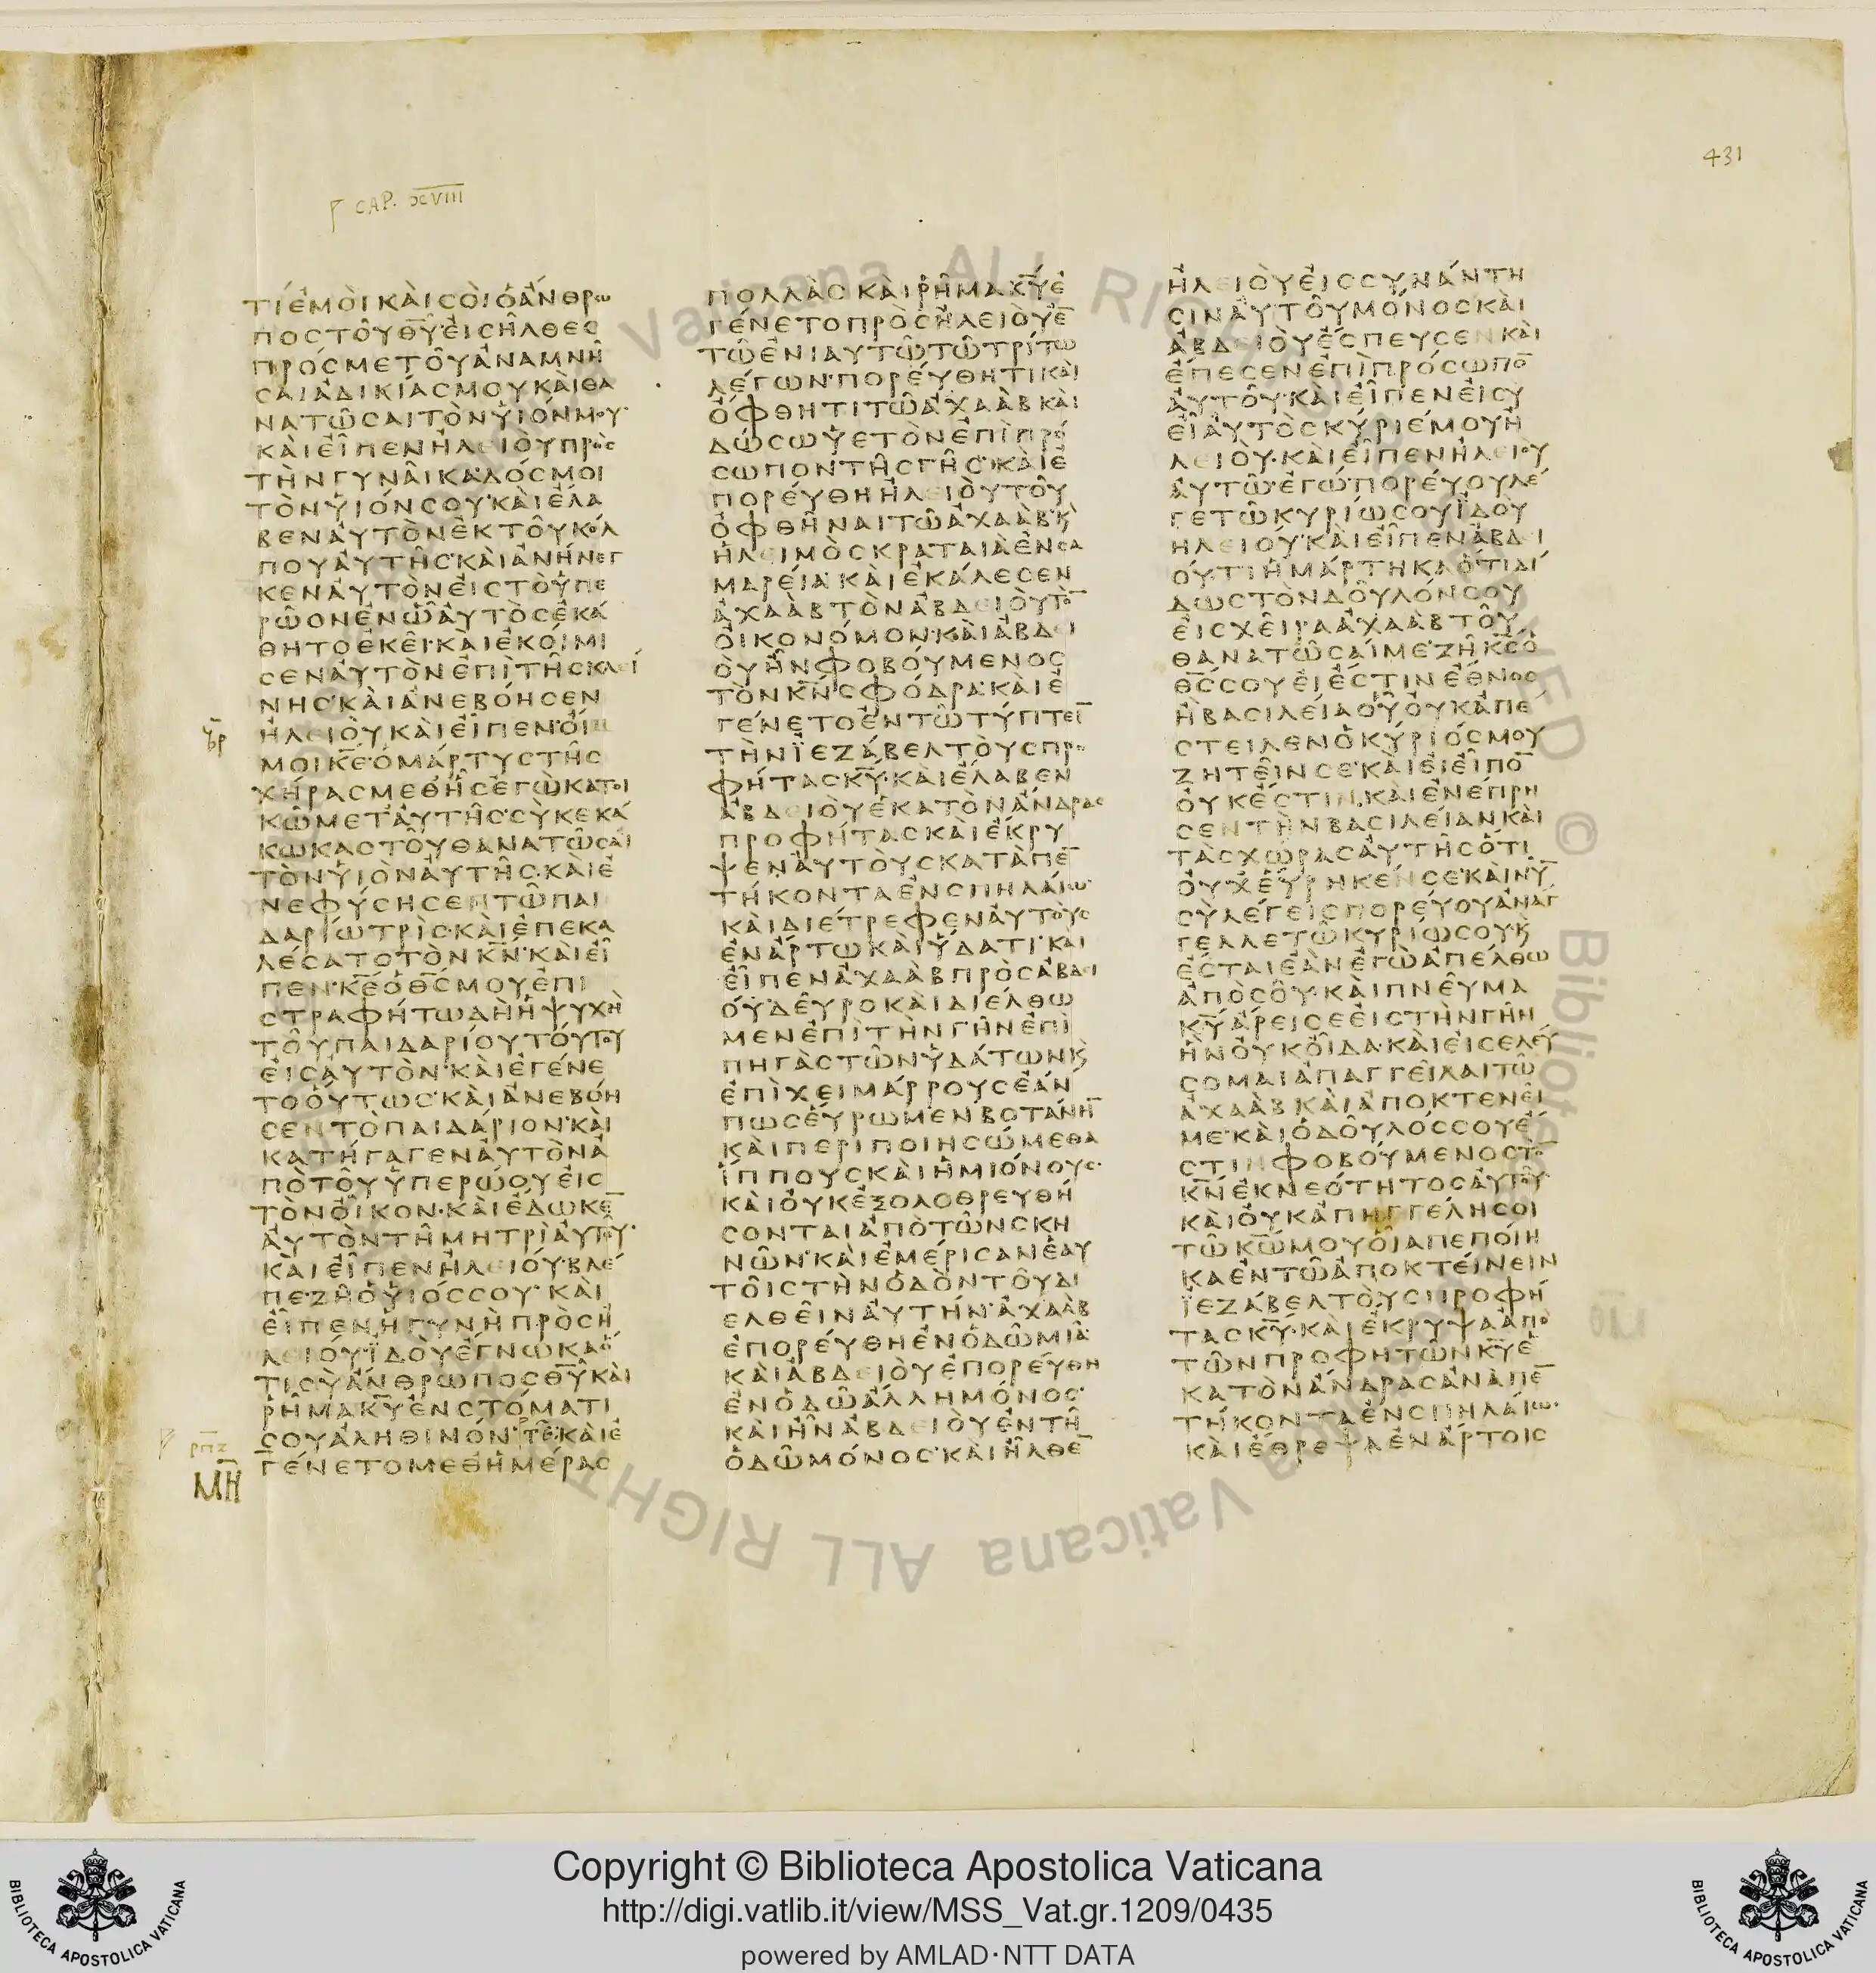 431
CAP. XVIII
ΤΙ ΕΜΟΙ ΚΑΙ ΣΟΙ Ο ΑΝΘΡΩ
ΠΟΣ ΤΟΥ ΘΥ ΕΙΣΗΛΘΕΣ
ΠΡΟΣ ΜΕ ΤΟΥ ΑΝΑΜΝΗ
ΣΑΙ ΑΔΙΚΙΑΣ ΜΟΥ ΚΑΙ ΘΑ
ΝΑΤΩΣΑΙ ΤΟΝ ΥΙΟΝ ΜΟΥ
ΚΑΙ ΕΙΠΕΝ ΗΛΕΙΟΥ ΠΡΟΣ
ΤΗΝ ΓΥΝΑΙΚΑ ΔΟΣ ΜΟΙ
ΤΟΝ ΥΙΟΝ ΣΟΥ ΚΑΙ ΕΛΑ
ΒΕΝ ΑΥΤΟΝ ΕΚ ΤΟΥ ΚΟΛ
ΠΟΥ ΑΥΤΗΣ ΚΑΙ ΑΝΗΝΕΓ
ΚΕΝ ΑΥΤΟΝ ΕΙΣ ΤΟ ΥΠΕ
ΡΩΟΝ ΕΝ Ω ΑΥΤΟΣ ΕΚΑ
ΘΗΤΟ ΕΚΕΙ ΚΑΙ ΕΚΟΙΜΙ
ΣΕΝ ΑΥΤΟΝ ΕΠΙ ΤΗΣ ΚΛΕΙ
ΝΗΣ ΚΑΙ ΑΝΕΒΟΗΣΕΝ
ΗΛΕΙΟΥ ΚΑΙ ΕΙΠΕΝ ΟΙ
ΜΟΙ ΚΕ Ο ΜΑΡΤΥΣ ΤΗΣ
ΧΗΡΑΣ ΜΕΘ ΗΣ ΕΓΩ ΚΑΤΟΙ
ΚΩ ΜΕΤ ΑΥΤΗΣ ΣΥ ΚΕΚΑ
ΚΩΚΑΣ ΤΟΥ ΘΑΝΑΤΩΣΑΙ
ΤΟΝ ΥΙΟΝ ΑΥΤΗΣ ΚΑΙ Ε
ΝΕΦΥΣΗΣΕΝ ΤΩ ΠΑΙ
ΔΑΡΙΩ ΤΡΙΣ ΚΑΙ ΕΠΕΚΑ
ΛΕΣΑΤΟ ΤΟΝ ΚΝ ΚΑΙ ΕΙ
ΠΕΝ ΚΕ Ο ΘΣ ΜΟΥ ΕΠΙ
ΣΤΡΑΦΗΤΩ ΔΗ Η ΨΥΧΗ
ΤΟΥ ΠΑΙΔΑΡΙΟΥ ΤΟΥΤΟΥ
ΕΙΣ ΑΥΤΟΝ ΚΑΙ ΕΓΕΝΕ
ΤΟ ΟΥΤΩΣ ΚΑΙ ΑΝΕΒΟΗ
ΣΕΝ ΤΟ ΠΑΙΔΑΡΙΟΝ ΚΑΙ
ΚΑΤΗΓΑΓΕΝ ΑΥΤΟΝ Α
ΠΟ ΤΟΥ ΥΠΕΡΩΟΥ ΕΙΣ
ΤΟΝ ΟΙΚΟΝ ΚΑΙ ΕΔΩΚΕ̅
ΑΥΤΟΝ ΤΗ ΜΗΤΡΙ ΑΥΤΟΥ
ΚΑΙ ΕΙΠΕΝ ΗΛΕΙΟΥ ΒΛΕ
ΠΕ ΖΗ Ο ΥΙΟΣ ΣΟΥ ΚΑΙ
ΕΙΠΕΝ Η ΓΥΝΗ ΠΡΟΣ Η
ΛΕΙΟΥ ΙΔΟΥ ΕΓΝΩΚΑ Ο
ΤΙ ΣΥ ΑΝΘΡΩΠΟΣ ΘΥ ΚΑΙ
ΡΗΜΑ ΚΥ ΕΝ ΣΤΟΜΑΤΙ
ΣΟΥ ΑΛΗΘΙΝΟΝ ΚΑΙ Ε
ΓΕΝΕΤΟ ΜΕΘ ΗΜΕΡΑΣ
ΜΗ
ΠΟΛΛΑΣ ΚΑΙ ΡΗΜΑ ΚΥ Ε
ΓΕΝΕΤΟ ΠΡΟΣ ΗΛΕΙΟΥ Ε̅
ΤΩ ΕΝΙΑΥΤΩ ΤΩ ΤΡΙΤΩ
ΛΕΓΩΝ ΠΟΡΕΥΘΗΤΙ ΚΑΙ
ΟΦΘΗΤΙ ΤΩ ΑΧΑΑΒ ΚΑΙ
ΔΩΣΩ ΥΕΤΟΝ ΕΠΙ ΠΡΟ
ΣΩΠΟΝ ΤΗΣ ΓΗΣ ΚΑΙ Ε
ΠΟΡΕΥΘΗ ΗΛΕΙΟΥ ΤΟΥ
ΟΦΘΗΝΑΙ ΤΩ ΑΧΑΑΒ Κ
Η ΛΕΙΜΟΣ ΚΡΑΤΑΙΑ ΕΝ ΣΑ
ΜΑΡΕΙΑ ΚΑΙ ΕΚΑΛΕΣΕΝ
ΑΧΑΑΒ ΤΟΝ ΑΒΔΕΙΟΥ ΤΟ̅
ΟΙΚΟΝΟΜΟΝ ΚΑΙ ΑΒΔΕΙ
ΟΥ ΗΝ ΦΟΒΟΥΜΕΝΟΣ
ΤΟΝ ΚΝ ΣΦΟΔΡΑ ΚΑΙ Ε
ΓΕΝΕΤΟ ΕΝ ΤΩ ΤΥΠΤΕΙ̅
ΤΗΝ ΙΕΖΑΒΕΛ ΤΟΥΣ ΠΡΟ
ΦΗΤΑΣ ΚΥ ΚΑΙ ΕΛΑΒΕΝ
ΑΒΔΕΙΟΥ ΕΚΑΤΟΝ ΑΝΔΡΑΣ
ΠΡΟΦΗΤΑΣ ΚΑΙ ΕΚΡΥ
ΨΕΝ ΑΥΤΟΥΣ ΚΑΤΑ ΠΕ̅
ΤΗΚΟΝΤΑ ΕΝ ΣΠΗΛΑΙΩ
ΚΑΙ ΔΙΕΤΡΕΦΕΝ ΑΥΤΟΥΣ
ΕΝ ΑΡΤΩ ΚΑΙ ΥΔΑΤΙ ΚΑΙ
ΕΙΠΕΝ ΑΧΑΑΒ ΠΡΟΣ ΑΒΔΕΙ
ΟΥ ΔΕΥΡΟ ΚΑΙ ΔΙΕΛΘΩ
ΜΕΝ ΕΠΙ ΤΗΝ ΓΗΝ ΕΠΙ
ΠΗΓΑΣ ΤΩΝ ΥΔΑΤΩΝ Κ
ΕΠΙ ΧΕΙΜΑΡΡΟΥΣ ΕΑΝ
ΠΩΣ ΕΥΡΩΜΕΝ ΒΟΤΑΝΗ̅
ΚΑΙ ΠΕΡΙΠΟΙΗΣΩΜΕΘΑ
ΙΠΠΟΥΣ ΚΑΙ ΗΜΙΟΝΟΥΣ
ΚΑΙ ΟΥΚ ΕΞΟΛΟΘΡΕΥΘΗ
ΣΟΝΤΑΙ ΑΠΟ ΤΩΝ ΣΚΗ
ΝΩΝ ΚΑΙ ΕΜΕΡΙΣΑΝ ΕΑΥ
ΤΟΙΣ ΤΗΝ ΟΔΟΝ ΤΟΥ ΔΙ
ΕΛΘΕΙΝ ΑΥΤΗΝ ΑΧΑΑΒ
ΕΠΟΡΕΥΘΗ ΕΝ ΟΔΩ ΜΙΑ
ΚΑΙ ΑΒΔΕΙΟΥ ΕΠΟΡΕΥΘΗ
ΕΝ ΟΔΩ ΑΛΛΗ ΜΟΝΟΣ
ΚΑΙ ΗΝ ΑΒΔΕΙΟΥ ΕΝ ΤΗ
ΟΔΩ ΜΟΝΟΣ ΚΑΙ ΗΛΘΕ̅
ΗΛΕΙΟΥ ΕΙΣ ΣΥΝΑΝΤΗ
ΣΙΝ ΑΥΤΟΥ ΜΟΝΟΣ ΚΑΙ
ΑΒΔΕΙΟΥ ΕΣΠΕΥΣΕΝ ΚΑΙ
ΕΠΕΣΕΝ ΕΠΙ ΠΡΟΣΩΠΟ̅
ΑΥΤΟΥ ΚΑΙ ΕΙΠΕΝ ΕΙ ΣΥ
ΕΙ ΑΥΤΟΣ ΚΥΡΙΕ ΜΟΥ Η
ΛΕΙΟΥ ΚΑΙ ΕΙΠΕΝ ΗΛΕΙΟΥ
ΑΥΤΩ ΕΓΩ ΠΟΡΕΥΟΥ ΛΕ
ΓΕ ΤΩ ΚΥΡΙΩ ΣΟΥ ΙΔΟΥ
ΗΛΕΙΟΥ ΚΑΙ ΕΙΠΕΝ ΑΒΔΕΙ
ΟΥ ΤΙ ΗΜΑΡΤΗΚΑ ΟΤΙ ΔΙ
ΔΩΣ ΤΟΝ ΔΟΥΛΟΝ ΣΟΥ
ΕΙΣ ΧΕΙΡΑ ΑΧΑΑΒ ΤΟΥ
ΘΑΝΑΤΩΣΑΙ ΜΕ ΖΗ ΚΣ Ο
ΘΣ ΣΟΥ ΕΙ ΕΣΤΙΝ ΕΘΝΟΣ
Η ΒΑΣΙΛΕΙΑ ΟΥ ΟΥΚ ΑΠΕ
ΣΤΕΙΛΕΝ Ο ΚΥΡΙΟΣ ΜΟΥ
ΖΗΤΕΙΝ ΣΕ ΚΑΙ ΕΙ ΕΙΠΟ̅
ΟΥΚ ΕΣΤΙΝ ΚΑΙ ΕΝΕΠΡΗ
ΣΕΝ ΤΗΝ ΒΑΣΙΛΕΙΑΝ ΚΑΙ
ΤΑΣ ΧΩΡΑΣ ΑΥΤΗΣ ΟΤΙ
ΟΥΧ ΕΥΡΗΚΕΝ ΣΕ ΚΑΙ ΝΥ̅
ΣΥ ΛΕΓΕΙΣ ΠΟΡΕΥΟΥ ΑΝΑΓ
ΓΕΛΛΕ ΤΩ ΚΥΡΙΩ ΣΟΥ Κ
ΕΣΤΑΙ ΕΑΝ ΕΓΩ ΑΠΕΛΘΩ
ΑΠΟ ΣΟΥ ΚΑΙ ΠΝΕΥΜΑ
ΚΥ ΑΡΕΙ ΣΕ ΕΙΣ ΤΗΝ ΓΗΝ
ΗΝ ΟΥΚ ΟΙΔΑ ΚΑΙ ΕΙΣΕΛΕΥ
ΣΟΜΑΙ ΑΠΑΓΓΕΙΛΑΙ ΤΩ
ΑΧΑΑΒ ΚΑΙ ΑΠΟΚΤΕΝΕΙ
ΜΕ ΚΑΙ Ο ΔΟΥΛΟΣ ΣΟΥ Ε
ΣΤΙΝ ΦΟΒΟΥΜΕΝΟΣ ΤΟ̅
ΚΝ ΕΚ ΝΕΟΤΗΤΟΣ ΑΥΤΟΥ
ΚΑΙ ΟΥΚ ΑΠΗΓΓΕΛΗ ΣΟΙ
ΤΩ ΚΩ ΜΟΥ ΟΙΑ ΠΕΠΟΙΗ
ΚΑ ΕΝ ΤΩ ΑΠΟΚΤΕΙΝΕΙΝ
ΙΕΖΑΒΕΛ ΤΟΥΣ ΠΡΟΦΗ
ΤΑΣ ΚΥ ΚΑΙ ΕΚΡΥΨΑ ΑΠΟ
ΤΩΝ ΠΡΟΦΗΤΩΝ ΚΥ Ε
ΚΑΤΟΝ ΑΝΔΡΑΣ ΑΝΑ ΠΕ̅
ΤΗΚΟΝΤΑ ΕΝ ΣΠΗΛΑΙΩ
ΚΑΙ ΕΘΡΕΨΑ ΕΝ ΑΡΤΟΙΣ
Vaticana ALL RIGHTS RESERVED © Biblioteca Apostolica Vaticana ALL RIGHT
Copyright © Biblioteca Apostolica Vaticana
http://digi.vatlib.it/view/MSS_Vat.gr.1209/0435
powered by AMLAD·NTT DATA
BIBLIOTECA APOSTOLICA VATICANA
BIBLIOTECA APOSTOLICA VATICANA